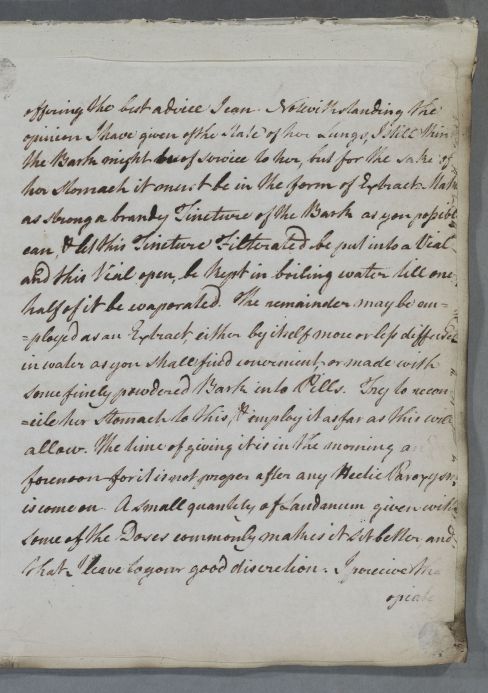 offering the best advice I can. Notwithstanding the
opinion I have given of the State of her Lungs, I still thin
the Bark might be of service to her, but for the sake of
her Stomach it must be in the form of Extract. Make
as strong a brandy Tincture of the Bark as you possibl
can, & let this Tincture Filterated be put into a Vial
and this Vial open, be kept in boiling water till one
half of it be evaporated. The remainder may be em=
=ployed as an Extract, either by itself more or less diffused
in water as you shall find convenient, or made with
some finely powdered Bark into Pills. Try to recon=
=cile her Stomach to this, & employ it as far as this will
allow. The time of giving it is in the morning a
forenoon for it is not proper after any Hectic Paroxysm
is come on. A small quantity of Laudanum given with
some of the Doses commonly makes it sit better, and
that I leave to your good discretion. I perceive tha
opiate